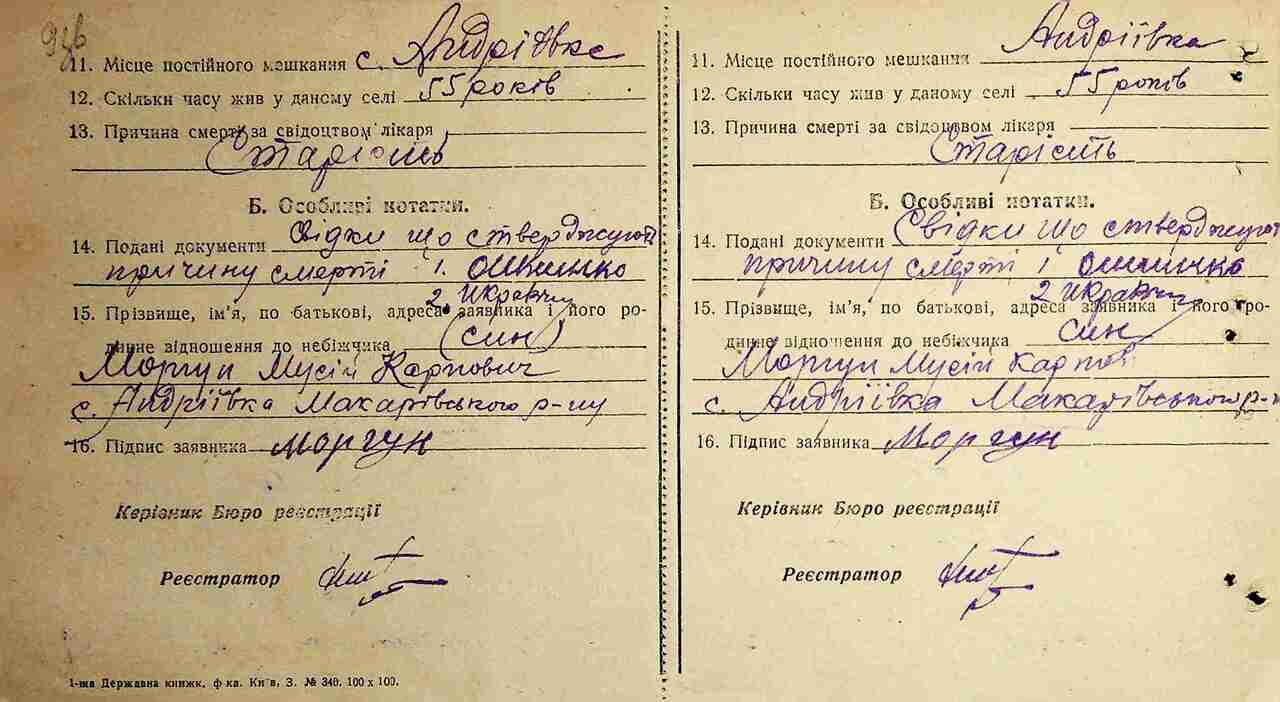 11. Місце постійного мешкання с. Андріївка
12. Скільки часу жив у даному селі 55 років
13. Причина смерті за свідоцтвом лікаря
Старість
Б. Особливі нотатки.
14. Подані документи Свідки що стверджують
причину смерті 1.
2
15. Прізвище, ім'я, по батькові, адреса заявника і його ро-
динне відношення до небіжчика (син)
Моргун Мусій Карпович
с. Андріївка Макарівського р-ну
16. Підпис заявника Моргун
Керівник Бюро реєстрації
Реєстратор
1-ша Державна книжк. ф-ка. Київ, З. № 340. 100 х 100.
11. Місце постійного мешкання Андріївка
12. Скільки часу жив у даному селі 55 років
13. Причина смерті за свідоцтвом лікаря
Старість
Б. Особливі нотатки.
14. Подані документи Свідки що стверджують
причину смерті 1
2
15. Прізвище, ім'я, по батькові, адреса заявника і його ро-
динне відношення до небіжчика син
Моргун Мусій Карпов
с. Андріївка Макарівського р-н
16. Підпис заявника Моргун
Керівник Бюро реєстрації
Реєстратор